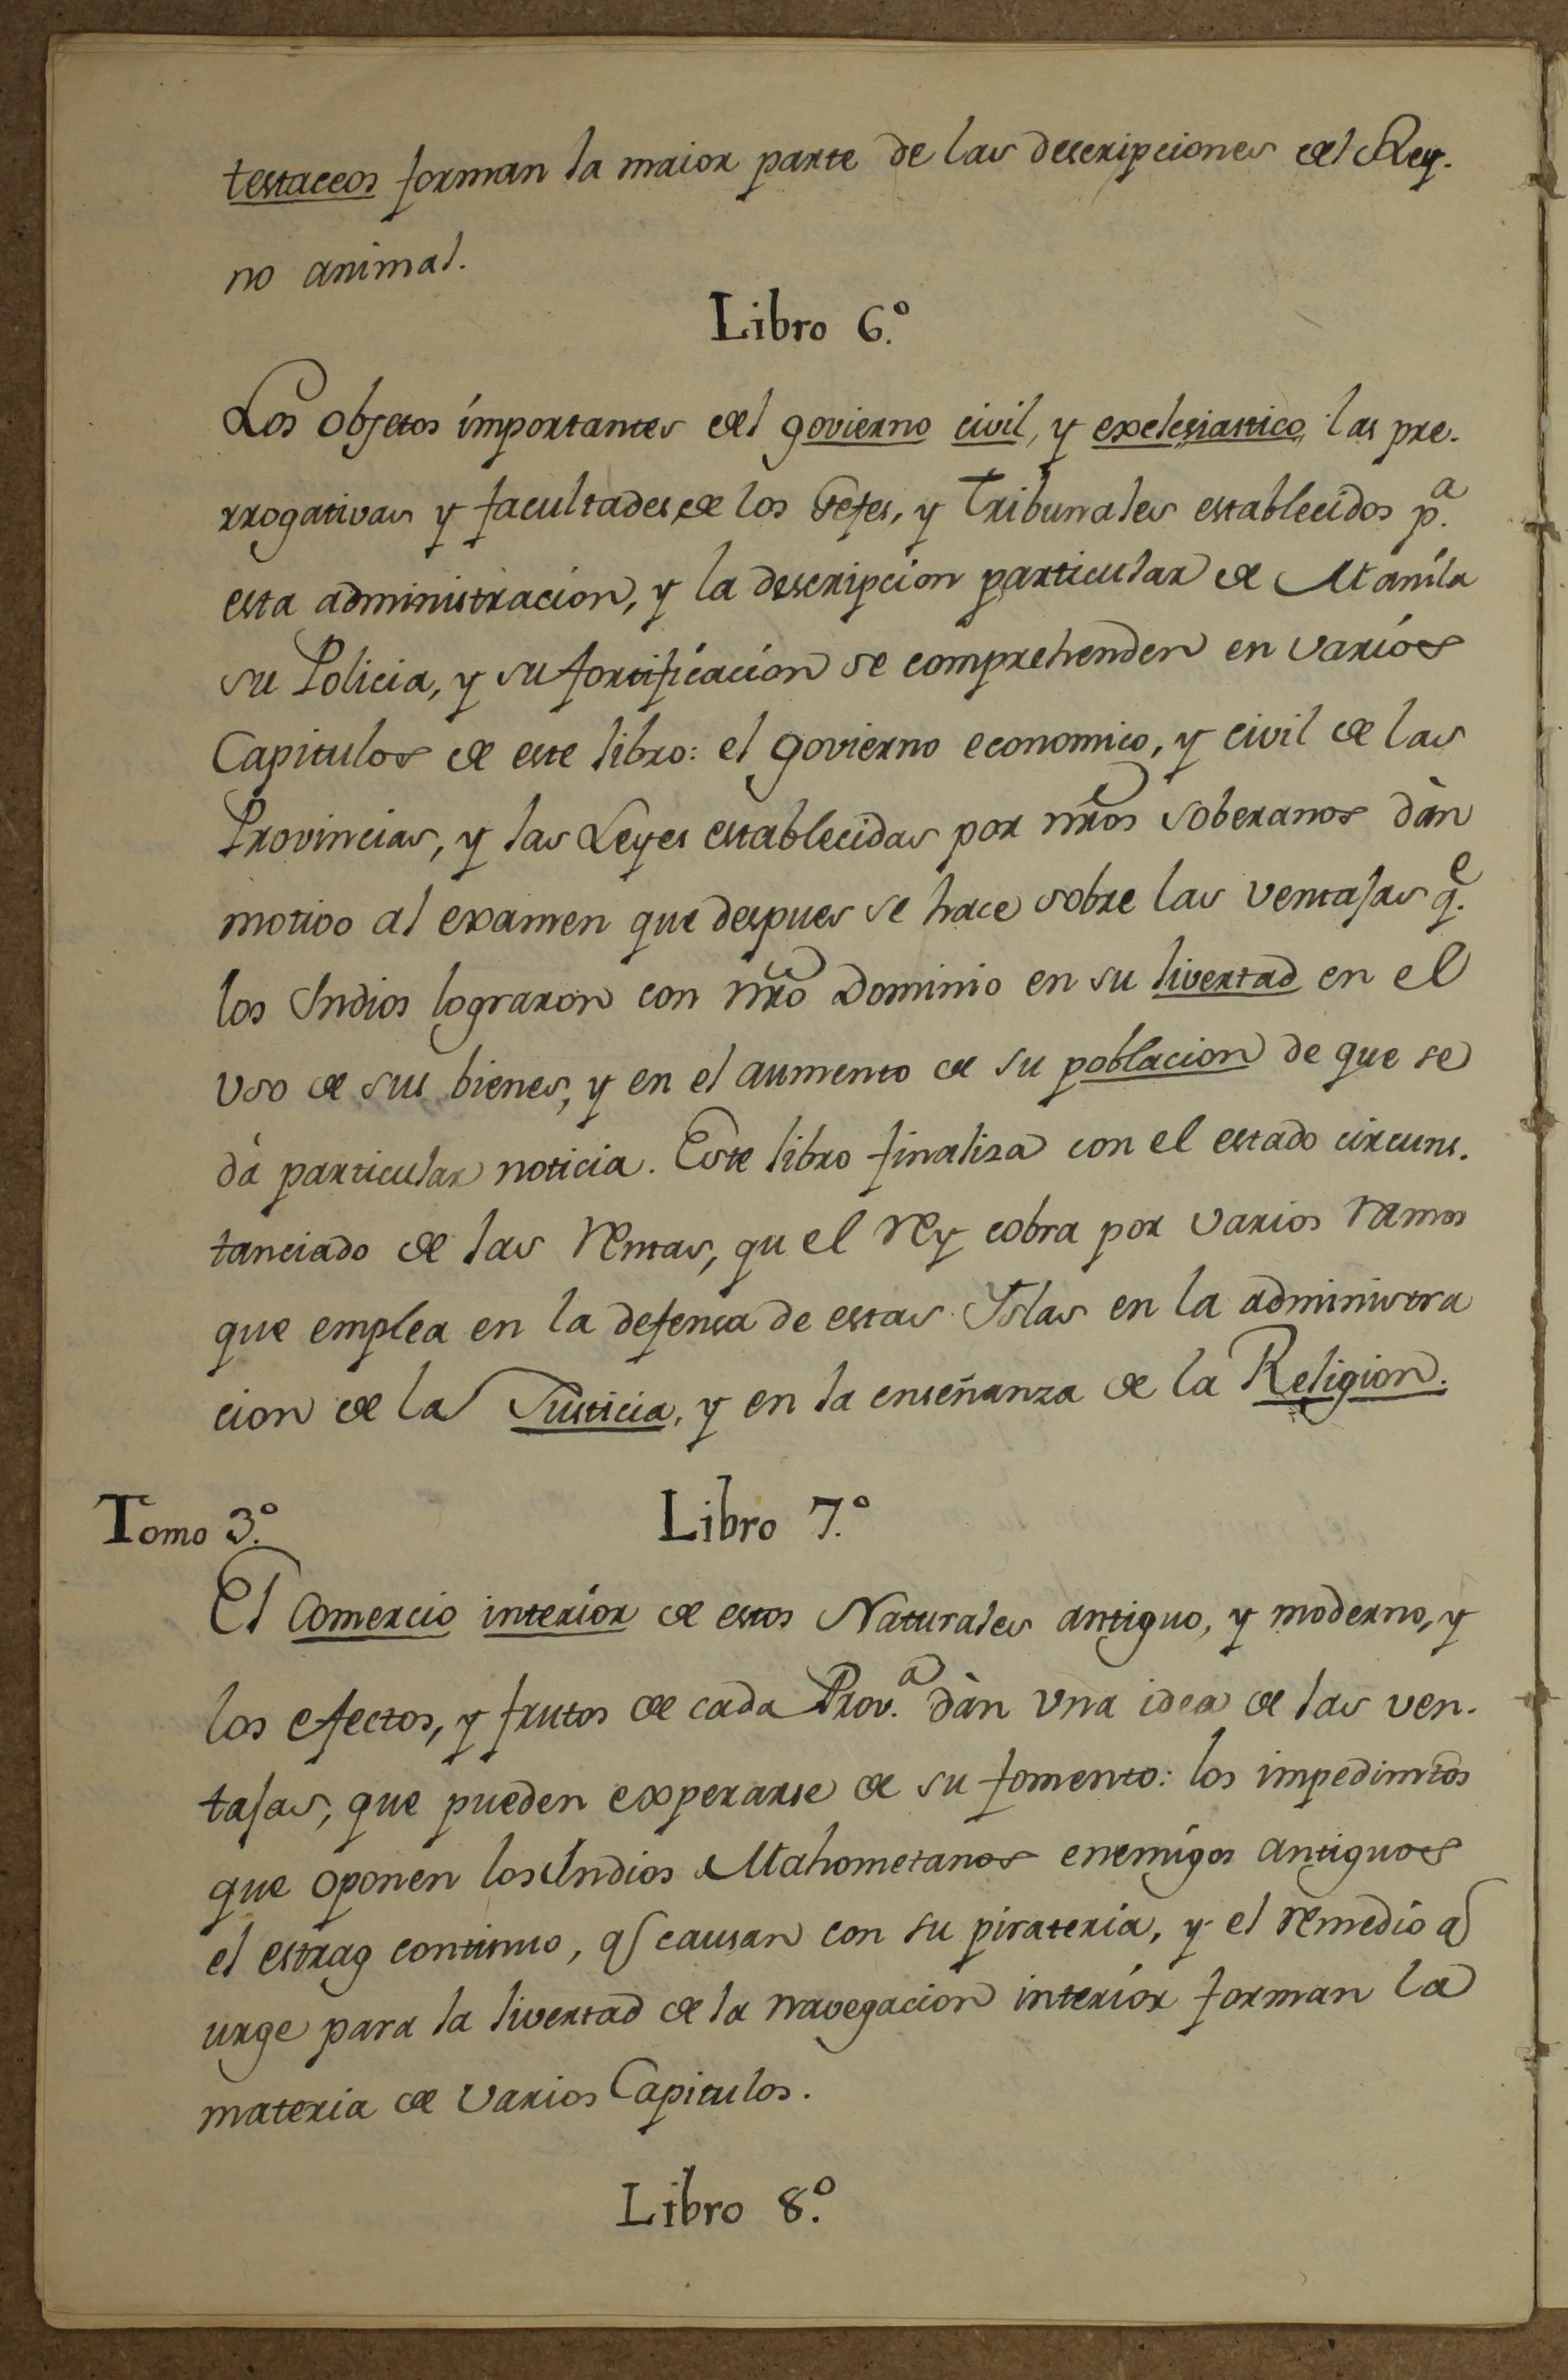 testaceos forman la maior parte de las descripciones del Rey-
no animal.
Libro 6.º
Los objetos importantes del govierno civil, y exclesiastico, las pre-
rrogativas y facultades de los Gefes, y Tribunales establecidos p.ª
esta administracion, y la descripcion particular de Manila
su Policia, y su fortificacion se comprehenden en varios
Capitulos de este libro: el govierno economico, y civil de las
Provincias, y las Leyes establecidas por nr̃os soberanos dàn
motivo al examen que despues se hace sobre las ventajas q.e
los Indios lograron con nr̃o Dominio en su livertad en el
uso de sus bienes, y en el aumento de su poblacion de que se
dà particular noticia. Este libro finaliza con el estado circuns-
tanciado de las rentas, qu el rey cobra por varios ramos
que emplea en la defensa de estas Yslas en la administra
cion de la Justicia, y en la enseñanza de la Religion.
Tomo 3.º Libro 7.º
El Comercio interior de estos Naturales antiguo, y moderno, y
los efectos, y frutos de cada Prov.ª dàn una idea de las ven-
tajas, que pueden experarse de su fomento: los impedimtos
que oponen los Indios Mahometanos enemigos antiguos
el estrag continuo, q causan con su pirateria, y el remedio q
urge para la livertad de la navegacion interior forman la
materia de varios Capitulos.
Libro 8.º